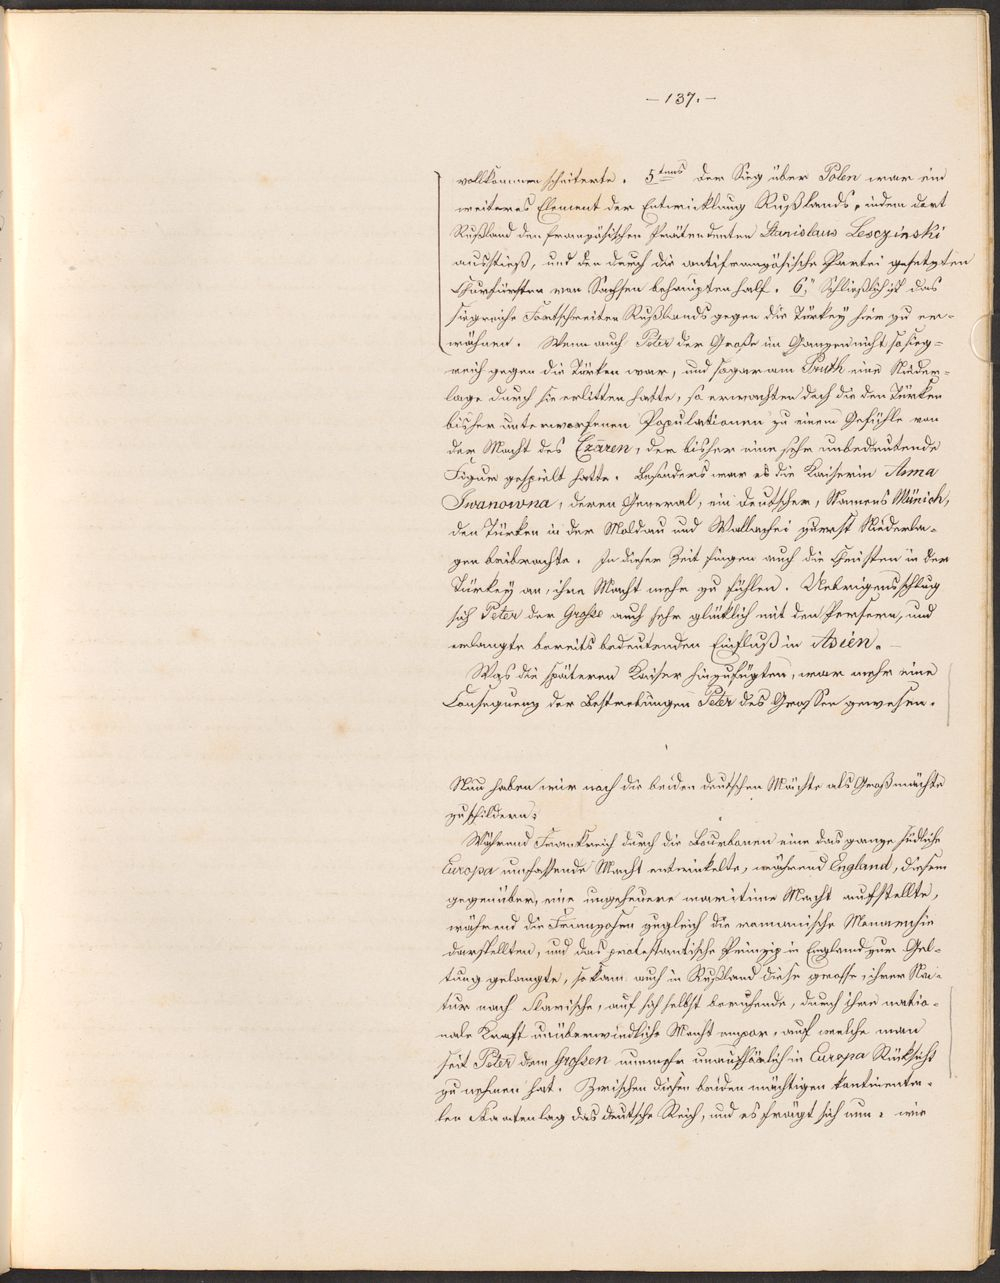 – 137. –
vollkommen scheiterte. 5tens der Sieg über Polen war ein
weiteres Element der Entwicklung Rußlands, indem dort
Rußland den französischen Prätendenten Stanislaus Lesczinski
ausstieß, und den durch die antifranzösische Partei gesetzten
Churfürsten von Sachsen behaupten half. 6, Schließlich ist das
siegreiche Fortschreiten Rußlands gegen die Türkey hier zu er-
wähnen. Wenn auch Peter der Große im Ganzen nicht so sieg-
reich gegen die Türken war, und sogar am Pruth eine Nieder-
lage durch sie erlitten hatte, so erwachten doch die den Türken
bisher unterworfenen Populationen zu einem Gefühle von
der Macht des Czaren, der bisher eine sehr unbedeutende
Figur gespielt hatte. Besonders war es die Kaiserin Anna
Iwanowna, deren General, ein Deutscher, Namens Münich,
den Türken in der Moldau und Wallachei zuerst Niederla-
gen beibrachte. In dieser Zeit fingen auch die Christen in der
Türkey an, ihre Macht mehr zu fühlen. Uebrigens schlug
sich Peter der Grosse auch sehr glücklich mit den Persern, und
erlangte bereits bedeutenden Einfluß in Asien. –
Was die späteren Kaiser hinzufügten, war mehr eine
Consequenz der Bestrebungen Peter des Grossen gewesen.
Nun haben wir noch die beiden deutschen Mächte als Großmächte
zu schildern:
Während Frankreich durch die Bourbonen eine das ganze südliche
Europa umfassende Macht entwickelte, während England, diesem
gegenüber, eine ungeheuere maritime Macht aufstellte,
während die Franzosen zugleich die romanische Monarchie
darstellten, und das protestantische Prinzip in England zur Gel-
tung gelangte, so kam auch in Rußland diese grosse, ihrer Na-
tur nach slavische, auf sich selbst beruhende, durch ihre natio-
nale Kraft unüberwindliche Macht empor, auf welche man
seit Peter dem Grossen nunmehr unaufhörlich in Europa Rücksicht
zu nehmen hat. Zwischen diesen beiden mächtigen kontinenta-
len Staaten lag das deutsche Reich, und es frägt sich nun: wie